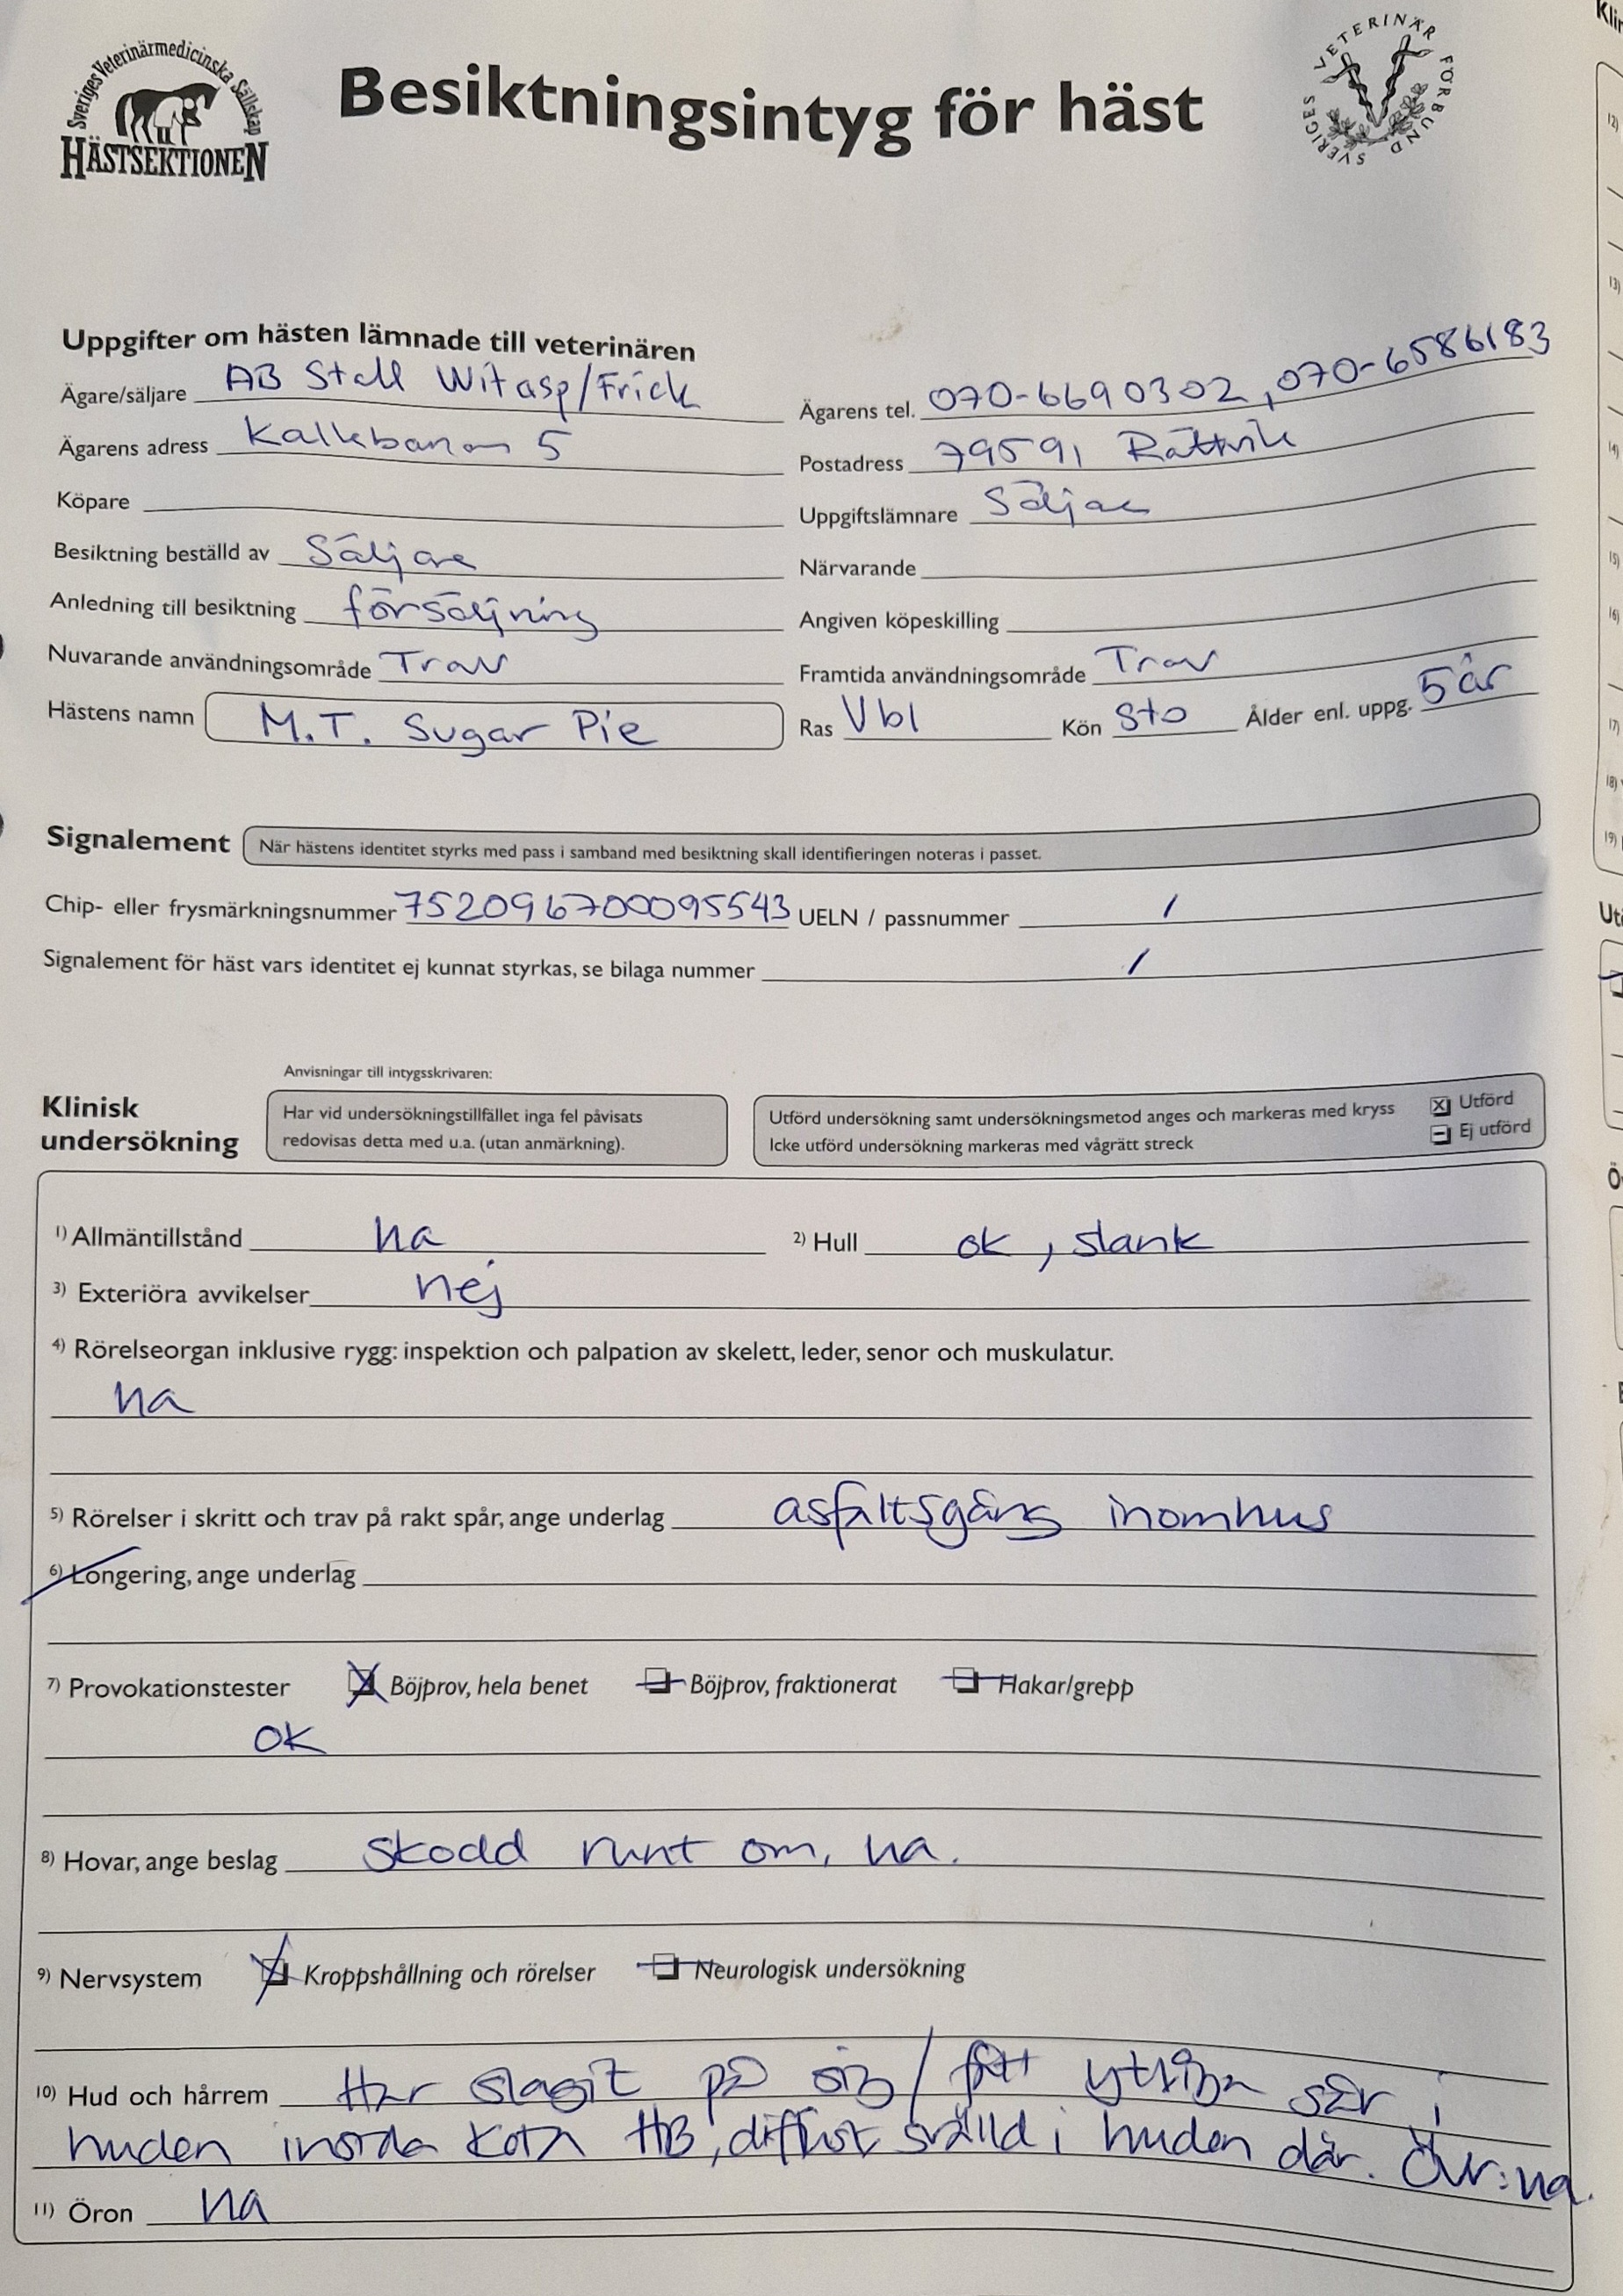 Sveriges Veterinärmedicinska Sällskap
HÄSTSEKTIONEN
Besiktningsintyg för häst
SVERIGES VETERINÄR FÖRBUND
Uppgifter om hästen lämnade till veterinären
Ägare/säljare AB Stall Witasp/Frick Ägarens tel. 070-6690302, 070-6586183
Ägarens adress 5 Postadress 79591 Rättvik
Köpare Uppgiftslämnare Säljare
Besiktning beställd av Säljare Närvarande
Anledning till besiktning försäljning Angiven köpeskilling
Nuvarande användningsområde Trav Framtida användningsområde Trav
Hästens namn M.T. Sugar Pie Ras Vbl Kön Sto Ålder enl. uppg. 5 år
Signalement När hästens identitet styrks med pass i samband med besiktning skall identifieringen noteras i passet.
Chip- eller frysmärkningsnummer 752096700095543 UELN / passnummer /
Signalement för häst vars identitet ej kunnat styrkas, se bilaga nummer /
Anvisningar till intygsskrivaren:
Klinisk undersökning
Har vid undersökningstillfället inga fel påvisats
redovisas detta med u.a. (utan anmärkning).
Utförd undersökning samt undersökningsmetod anges och markeras med kryss Utförd
Icke utförd undersökning markeras med vågrätt streck Ej utförd
1) Allmäntillstånd ua 2) Hull ok, slank
3) Exteriöra avvikelser nej
4) Rörelseorgan inklusive rygg: inspektion och palpation av skelett, leder, senor och muskulatur.
ua
5) Rörelser i skritt och trav på rakt spår, ange underlag asfaltsgång inomhus
6) Longering, ange underlag
7) Provokationstester Böjprov, hela benet Böjprov, fraktionerat Hakar/grepp
ok
8) Hovar, ange beslag skodd runt om, ua.
9) Nervsystem Kroppshållning och rörelser Neurologisk undersökning
10) Hud och hårrem Har slagit på sig / fått ytliga sår i
huden insida kota HB, diffust svälld i huden där. Övr: ua.
11) Öron ua